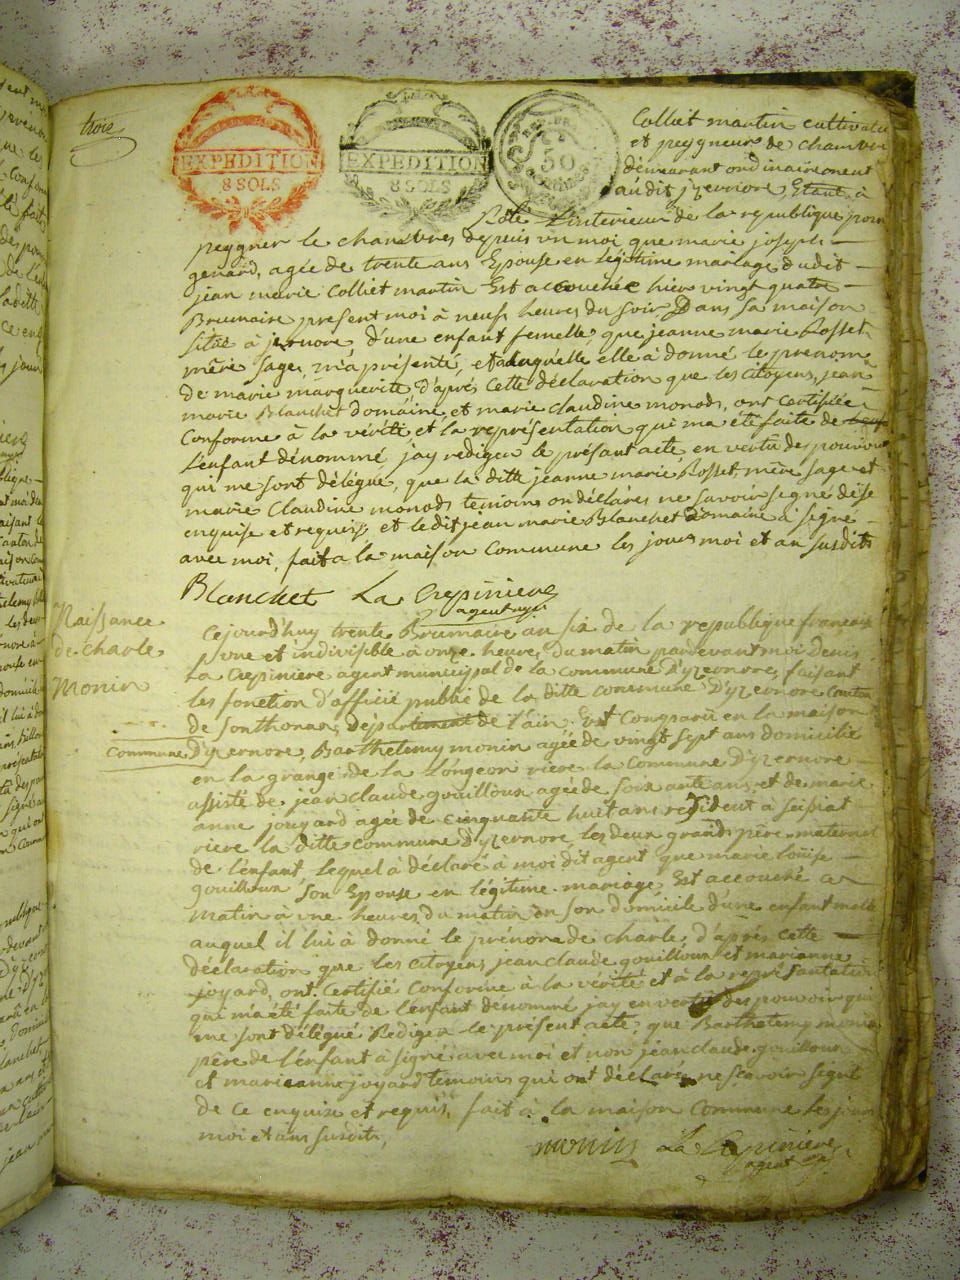 trois
EXPEDITION
8 SOLS
EXPEDITION
8 SOLS
50
Colliet martin cultivateur
et peygneur de chambre
démeurant ordinairement
audit jzernore, Etant à
L'interieur de la republique pour
peygner le chambres depuis un moi que marie joseph
genard, agée de trente ans Epouse en légitime mariage dudit
jean marie Colliet martin Est accouchée hier vingt quatre
Brumaire présent moi à neufs heures du soir Dans sa maison
sitüe à jzernore, d'une enfant femelle, que jeanne marie Rosset
mère sage, m'a présenté, et a laquelle elle à donné le prenom
de marie marguerite, d'après cette déclaration que les citoyens, jean
marie Blanchet domaine, et marie claudine monods, ont certifiée
Conforme à la vérité et la représentation qui ma été faite de
L'enfant dénommé jay rédigez le présant acte, en vertu des pouvoirs
qui me sont délégué, que la ditte jeanne marie Rosset mère sage et
marie Claudine monods temoins on déclarés ne savoir signé de se
enquise et requis, et ledit jean marie Blanchet Domaine à signé
avec moi, fait a la maison Commune les jours moi et an susdits
Blanchet La Crepiniere
agent
Naissance
de charle
Monin
Cejourd'huy trente Brumaire an six de la republique française
une et indivisible à onze heure, du matin pardevant moi Denis
La Crepiniere agent municipal de la commune D'yzernore, faisant
les fonction d'officié public de la ditte commune D'yzernore canton
de Sonthonax, departement de l'ain Est Comparü en la maison
Commune D'yzernore, Barthelemy monin agée de vingt sept ans domicilié
en la grange de la Longeon riere la Commune D'yzernore
assisté de jean claude gouilloux agée de soixante ans, et de marie
anne jouyard agée de cinquante huit ans résident à seissiat
riere la ditte commune D'yzernore, les deux grands père maternel
de l'enfant, lequel à déclaré à moi dit agent que marie loüise
gouilloux son Epouse en légitime mariage, Est accouché ce
matin à une heures du matin en son domicile d'une enfant male
auquel il lui à donné le prénom de charle, d'après cette
déclaration que les citoyens jean claude gouilloux et marianne
joyard, ont Certifié Conforme à la vérité et à la représantation
que ma été faite de l'enfant dénommé jay en vertu des pouvoir qui
me sont délégué Rédigez le présent acte, que Barthelemy monin
père de l'enfant à signé avec moi et non jean claude gouilloux
et marie anne joyard temoins qui ont déclarés ne scavoir signé
de ce enquise et requis, fait à la maison commune les jour
moi et ans susdits,
monin La Crepiniere
agent